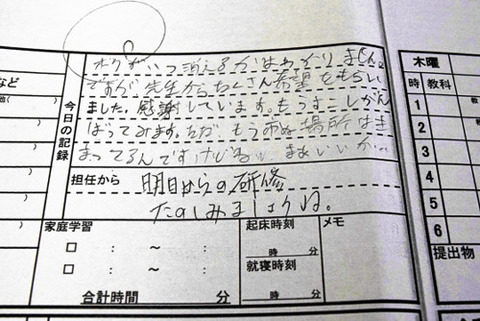 ボクがいつ消えるかはわかりません。
ですが、先生からたくさん希望をもらい
ました。感謝しています。もうすこしがん
ばってみます。ただ、もう市ぬ場所はき
まってるんですけどね。まあいいか…
今日の記録
担任から
明日からの研修
たのしみましょうね。
など
他(
)
)
)
家庭学習
□ : ~ :
□ : ~ :
合計時間 分
起床時刻
時 分
就寝時刻
時 分
メモ
木曜
時 教科
1
2
3
4
5
6
提出物